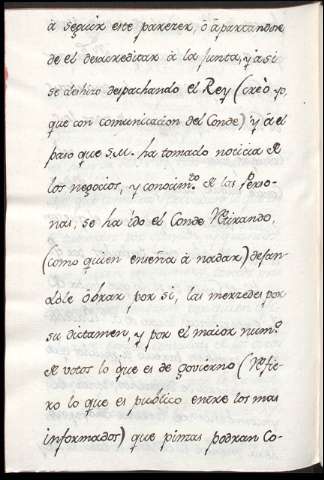 à seguir este parezer, ò apartandose
de el desacreditar à la junta, y asi
se deshizo despachando el Rey (creò yo,
que con comunicacion del Conde) y à el
paso que S.M. ha tomado noticia de
los negocios, y conocim.to de las Perso-
nas, se ha ido el Conde Retirando,
(como quien enseña à nadar) dejan-
dole obrar por si, las merzedes por
su dictamen, y por el maior num.o
de votos lo que es de govierno (Refie-
ro lo que es publico entre los mas
informados) que pienso podran Co-